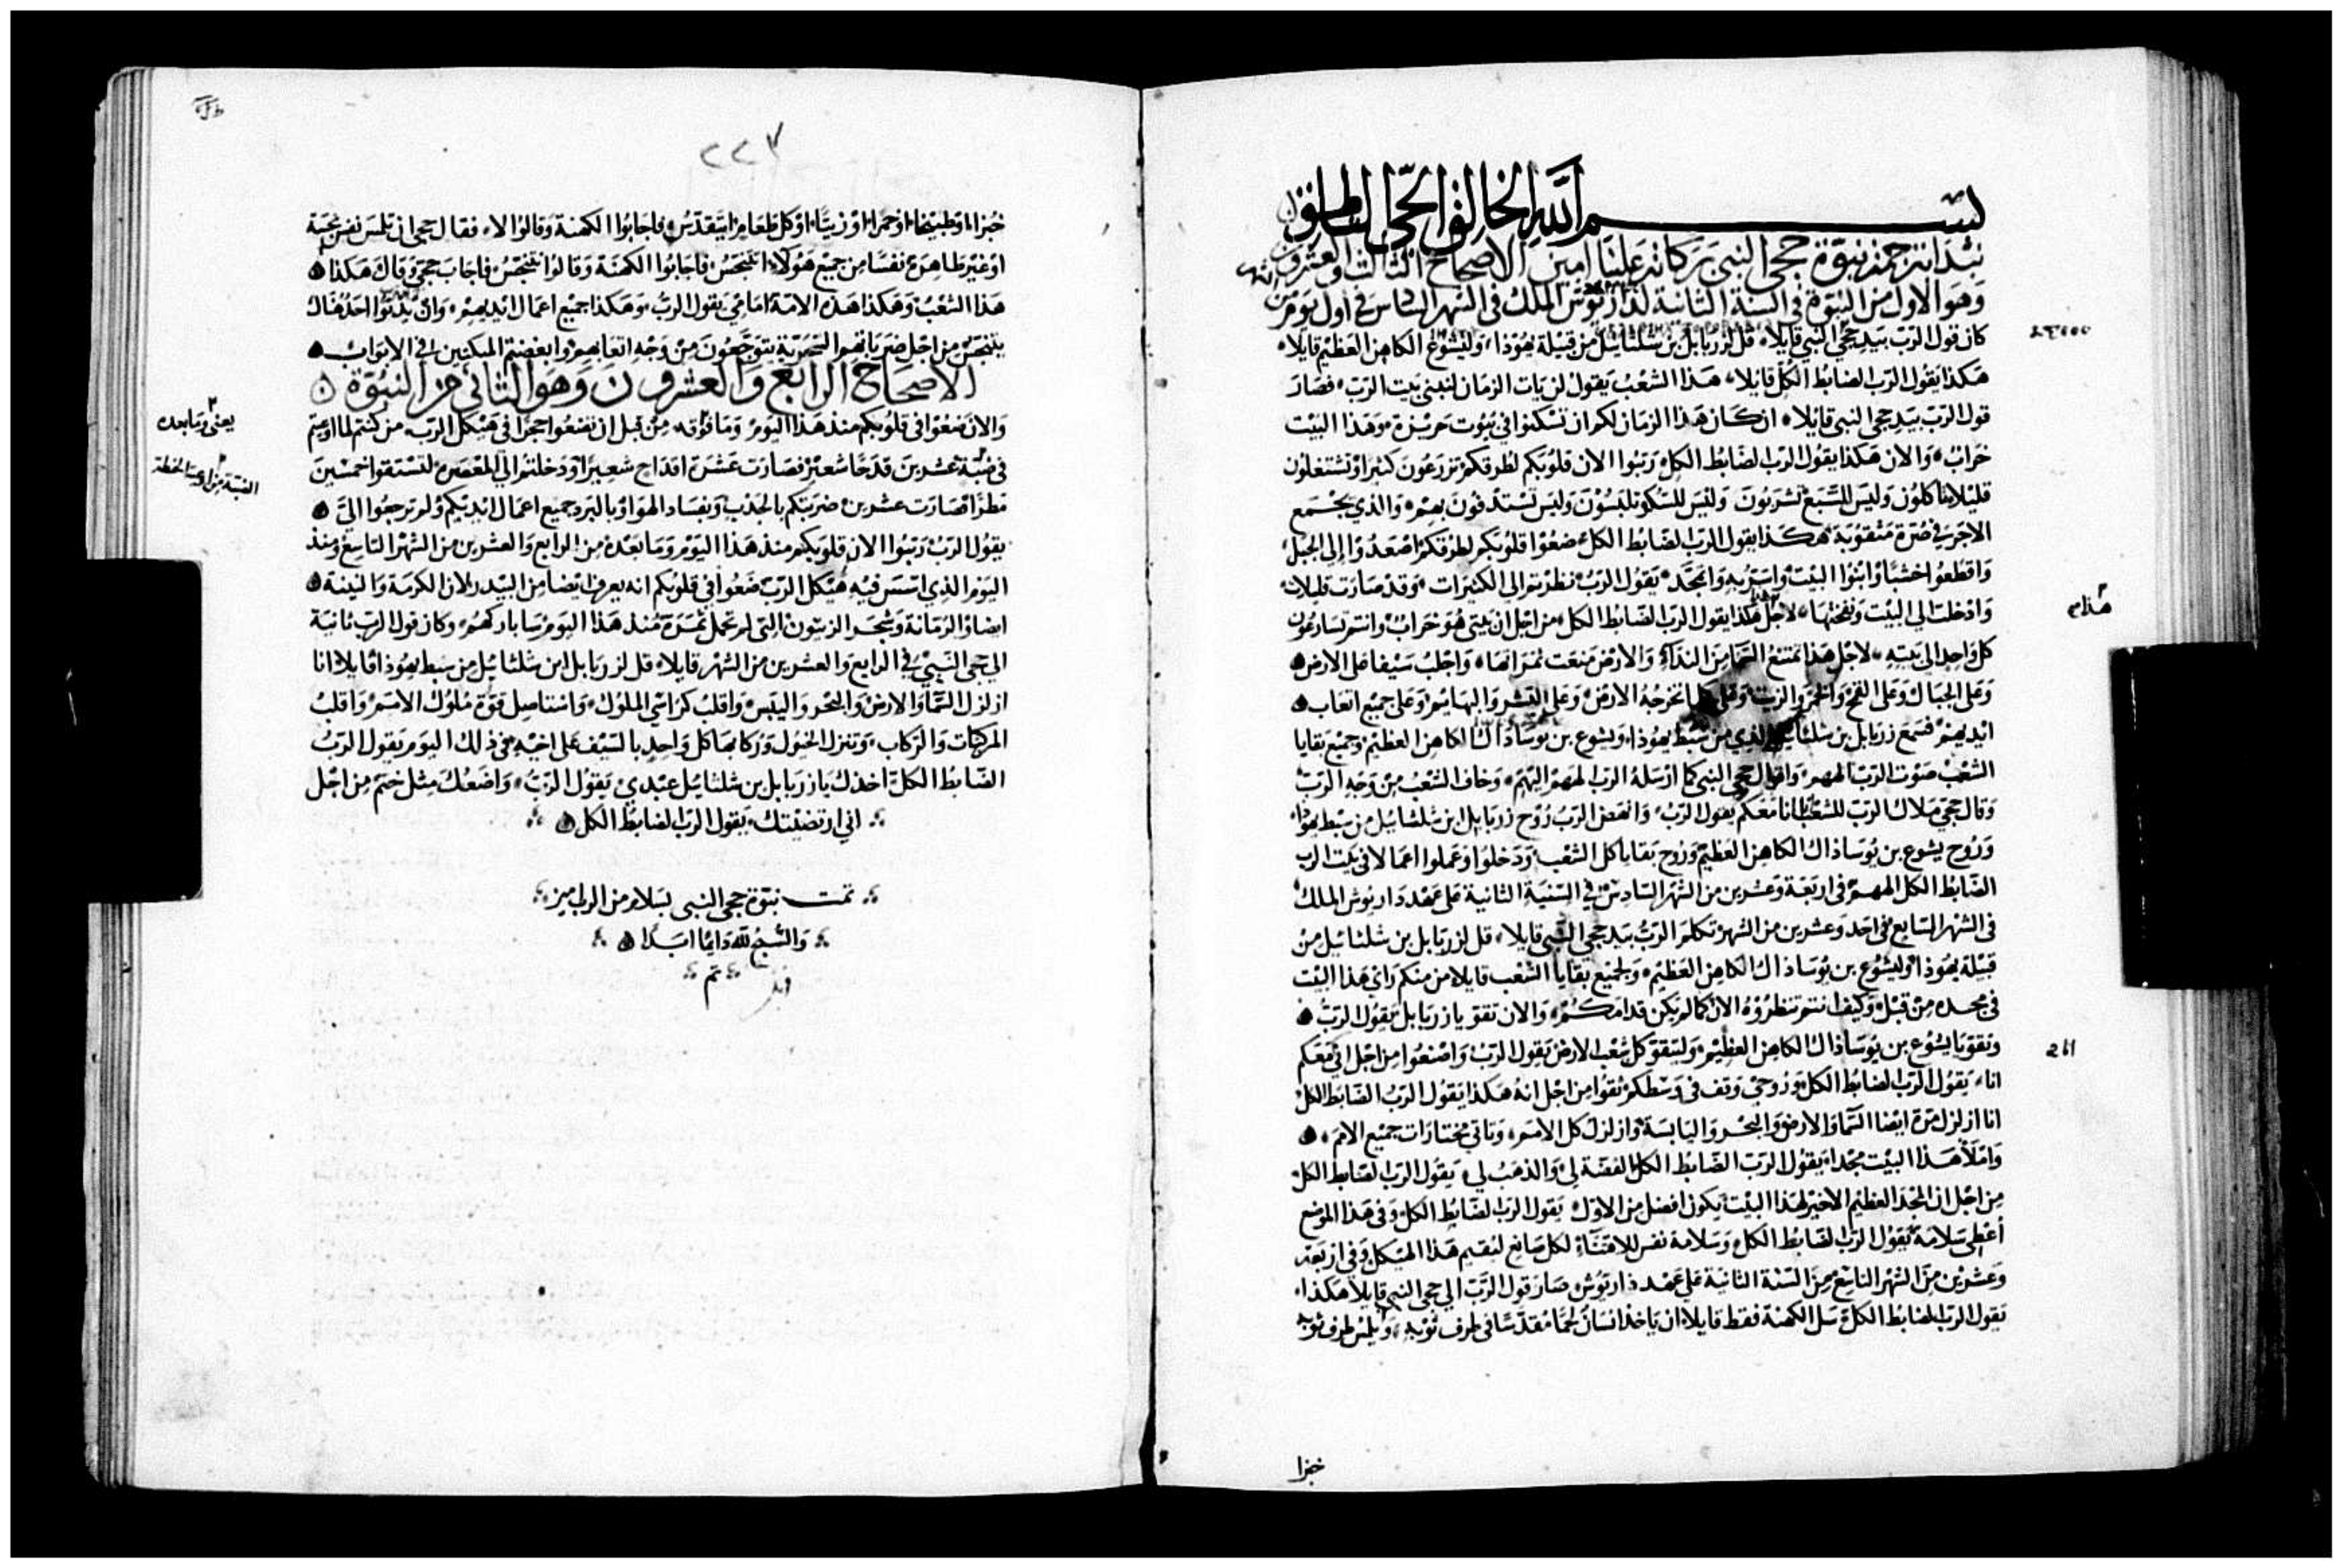 بسم الله الخالق الحي الناطق
نبتدا بترجمة نبوة حجي النبي بركاته علينا امين الاصحاح الثالث والعشرون
وهو الاول من النبوة في السنة الثانية لداريوش الملك في الشهر السادس في اول يوم من
كان قول الرب بيد حجي النبي قايلا، قل لزربابل بن شلثائيل من قبيلة يهوذا، وليشوع الكاهن العظيم قايلا،
هكذا يقول الرب الضابط الكل قايلا، هذا الشعب يقول لن يات الزمان لنبني بيت الرب، فصار
قول الرب بيد حجي النبي قايلا، ان كان هذا الزمان لكم ان تسكنوا في بيوت وهذا البيت
خراب، والان هكذا يقول الرب الضابط الكل رتبوا الان قلوبكم لطرقكم تزرعون كثيرا وتشتغلون
قليلا تاكلون وليس للشبع تشربون وليس للسكر تلبسون وليس تستدفون بهم، والذي يجتمع
الاجر في صرة مثقوبة، هكذا يقول الرب الضابط الكل ضعوا قلوبكم لطرقكم اصعدوا الي الجبل،
واقطعوا خشبا وابنوا البيت واسر به واتمجد، يقول الرب نظرتم الي الكثيرات، وقد صارت قليلات
وادخلت الي البيت ونفختها، لاجل هذا هكذا يقول الرب الضابط الكل، من اجل ان بيتي هو خراب وانتم تسارعون
كل واحد الي بيته، لاجل هذا تمتنع السما من النداء، والارض منعت ثمراتها، واجلب سيفا على الارض
وعلى الجبال وعلى القمح والخمر والزيت وعلى كلما تخرجه الارض وعلى البشر والبهايم وعلى جميع اتعاب
ايديهم فسمع زربابل بن شلثائيل الذي من سبط يهوذا، ويشوع بن يوساذاك الكاهن العظيم وجميع بقايا
الشعب صوت الرب الههم، واقوال حجي النبي كما ارسله الرب الههم اليهم، وخاف الشعب من وجه الرب
وقال حجي ملاك الرب للشعب انا معكم يقول الرب، وانهض الرب روح زربابل ابن شلثائيل من سبط يهوذا،
وروح يشوع بن يوساذاك الكاهن العظيم وروح بقايا كل الشعب ودخلوا وعملوا اعمالا في بيت الرب
الضابط الكل الههم في اربعة وعشرين من الشهر السادس في السنة الثانية على عهد داريوش الملك
في الشهر السابع في احد وعشرين من الشهر تكلم الرب بيد حجي النبي قايلا، قل لزربابل بن شلثائيل من
قبيلة يهوذا، وليشوع بن يوساذاك الكاهن العظيم، ولجميع بقايا الشعب قايلا من منكم راي هذا البيت
في مجده من قبل وكيف انتم تنظروه الان كما لم يكن قدامكم، والان تقو يا زربابل يقول الرب
وتقو يا يشوع بن يوساذاك الكاهن العظيم، وليتقو كل شعب الارض يقول الرب واصنعوا من اجل اني معكم
انا، يقول الرب الضابط الكل وروحي وقف في وسطكم تقوا من اجل انه هكذا يقول الرب الضابط الكل
انا ازلزل مرة ايضا السما والارض والبحر واليابسة وازلزل كل الامم، وتاتي مختارات جميع الامم،
واملا هذا البيت مجدا، يقول الرب الضابط الكل الفضة لي، والذهب لي، يقول الرب الضابط الكل
من اجل ان المجد العظيم الاخير لهذا البيت يكون افضل من الاول، يقول الرب الضابط الكل وفي هذا الموضع
اعطي سلامة يقول الرب الضابط الكل وسلامة نفس للاقتناء لكل صانع ليقيم هذا الهيكل، وفي اربعة
وعشرين من الشهر التاسع من السنة الثانية على عهد داريوش صار قول الرب الي حجي النبي قايلا هكذا،
يقول الرب الضابط الكل سل الكهنة فقط قايلا، ان ياخذ انسان لحما مقدسا في طرف ثوبه، ويلمس طرف ثوبه
خبزا
هذام
٢٢٣
خبزا، او طبيخا، او خمرا، او زيتا، او كل طعام ايتقدس، فاجابوا الكهنة وقالوا لا، فقال حجي ان تلمس نفس نجسة
او غير طاهرة نفسا من جميع هولاء اتتنجس فاجابوا الكهنة وقالوا تتنجس فاجاب حجي وقال هكذا
هذا الشعب وهكذا هذه الامة امامي يقول الرب، وهكذا جميع اعمال ايديهم، وان احد هناك
يتنجس من اجل ضرباتهم السحرية يتوجعون من وجه اتعابهم وابغضتم المبكتين في الابواب
الاصحاح الرابع والعشرون وهو الثاني من النبوة
والان ضعوا في قلوبكم منذ هذا اليوم وما فوقه من قبل ان تضعوا حجرا في هيكل الرب، من كنتم لما
في عشرين قدحا شعير فصارت عشرة اقداح شعيرا ودخلتم الي المعصرة لتستقوا خمسين
مطرا فصارت عشرين ضربتكم بالجدب وبفساد الهوا وبالبرد جميع اعمال ايديكم ولم ترجعوا الي
يقول الرب رتبوا الان قلوبكم منذ هذا اليوم وما بعده من الرابع والعشرين من الشهر التاسع ومنذ
اليوم الذي اسس فيه هيكل الرب ضعوا في قلوبكم انه يعرف ايضا من البيدر لان الكرمة والتينة
ايضا والرمانة وشجر الزيتون التي لم تحمل ثمرة منذ هذا اليوم سابارككم، وكان قول الرب ثانية
الي حجي النبي في الرابع والعشرين من الشهر قايلا، قل لزربابل ابن شلثائيل من سبط يهوذا قايلا انا
ازلزل السما والارض والبحر واليبس، واقلب كراسي الملوك، واستاصل قوة ملوك الامم، واقلب
المركبات والركاب، وتنزل الخيول وركابها كل واحد بالسيف على اخيه في ذلك اليوم يقول الرب
الضابط الكل، اخذك يا زربابل بن شلثائيل عبدي يقول الرب، واضعك مثل ختم من اجل
اني ارتضيتك، يقول الرب الضابط الكل
تمت نبوة حجي النبي بسلام من الرب امين
والسبح لله دايما ابدا
تم
يعني وما بعده